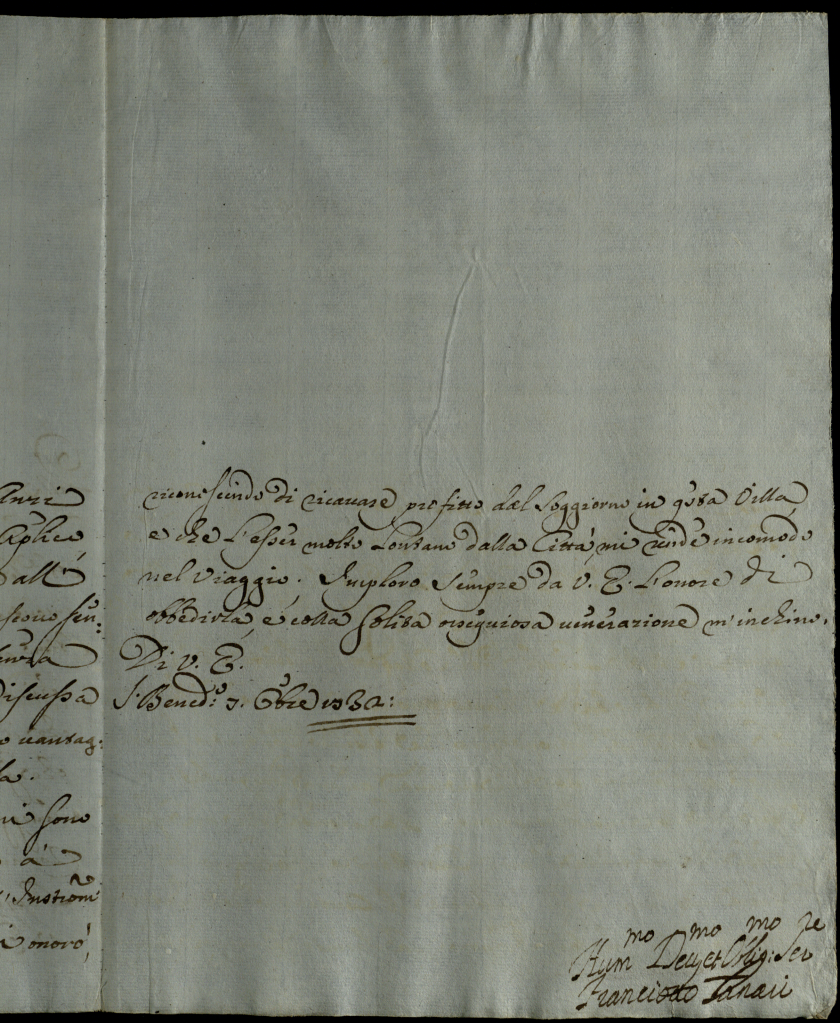 Anzi
Aplico
all'
sen:
senza
discussa
vantag:
la.
sono
à
Instrom̃
onorò,
riconoscendo di ricavare profitto dal soggiorno in q̃sta Villa,
e che l'esser molto Lontano dalla Città, mi rende incomodo
nel Viaggio. Imploro sempre da V. E. l'onore di
obbedirla, e colla solita ossequiosa venerazione m'inchino.
Di V. E.
S. Bened.º 7. Obre 1732:
Hum.mo Dev.mo et Oblig.mo Se.re
Francesco Tanari